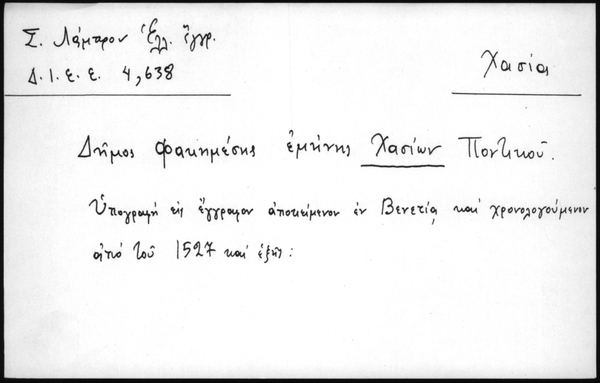 Σ. Λάμπρου Ἑλλ. ἔγγρ.
Δ. Ι. Ε. Ε. 4,638
Χασία
Δῆμος Φακημέσης ἐμήνης Χασίων Ποντικοῦ.
Ὑπογραφή εἰς ἔγγραφον ἀποκείμενον ἐν Βενετίᾳ καί χρονολογούμενον
ἀπό τοῦ 1527 καί ἑξῆς: